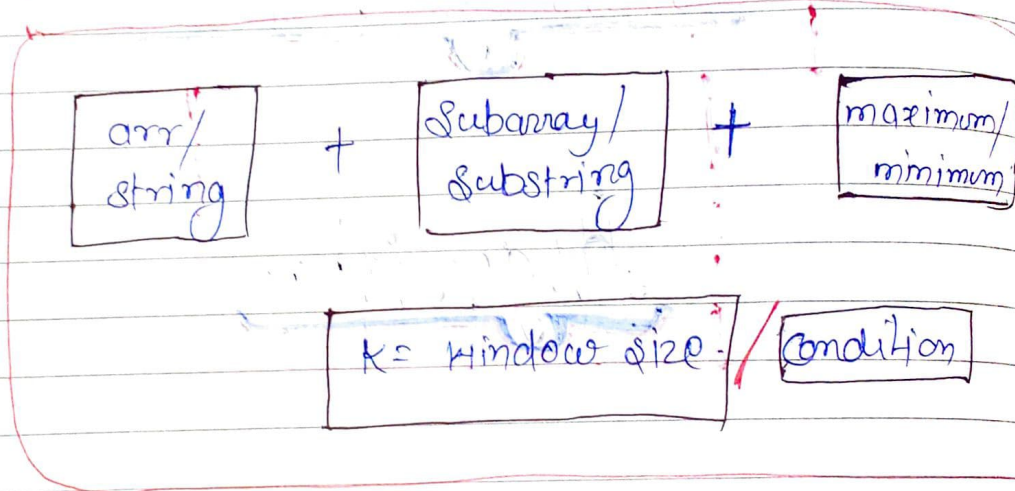 arr/
string
+
Subarray/
Substring
+
maximum/
minimum
K= Window size. / Condition